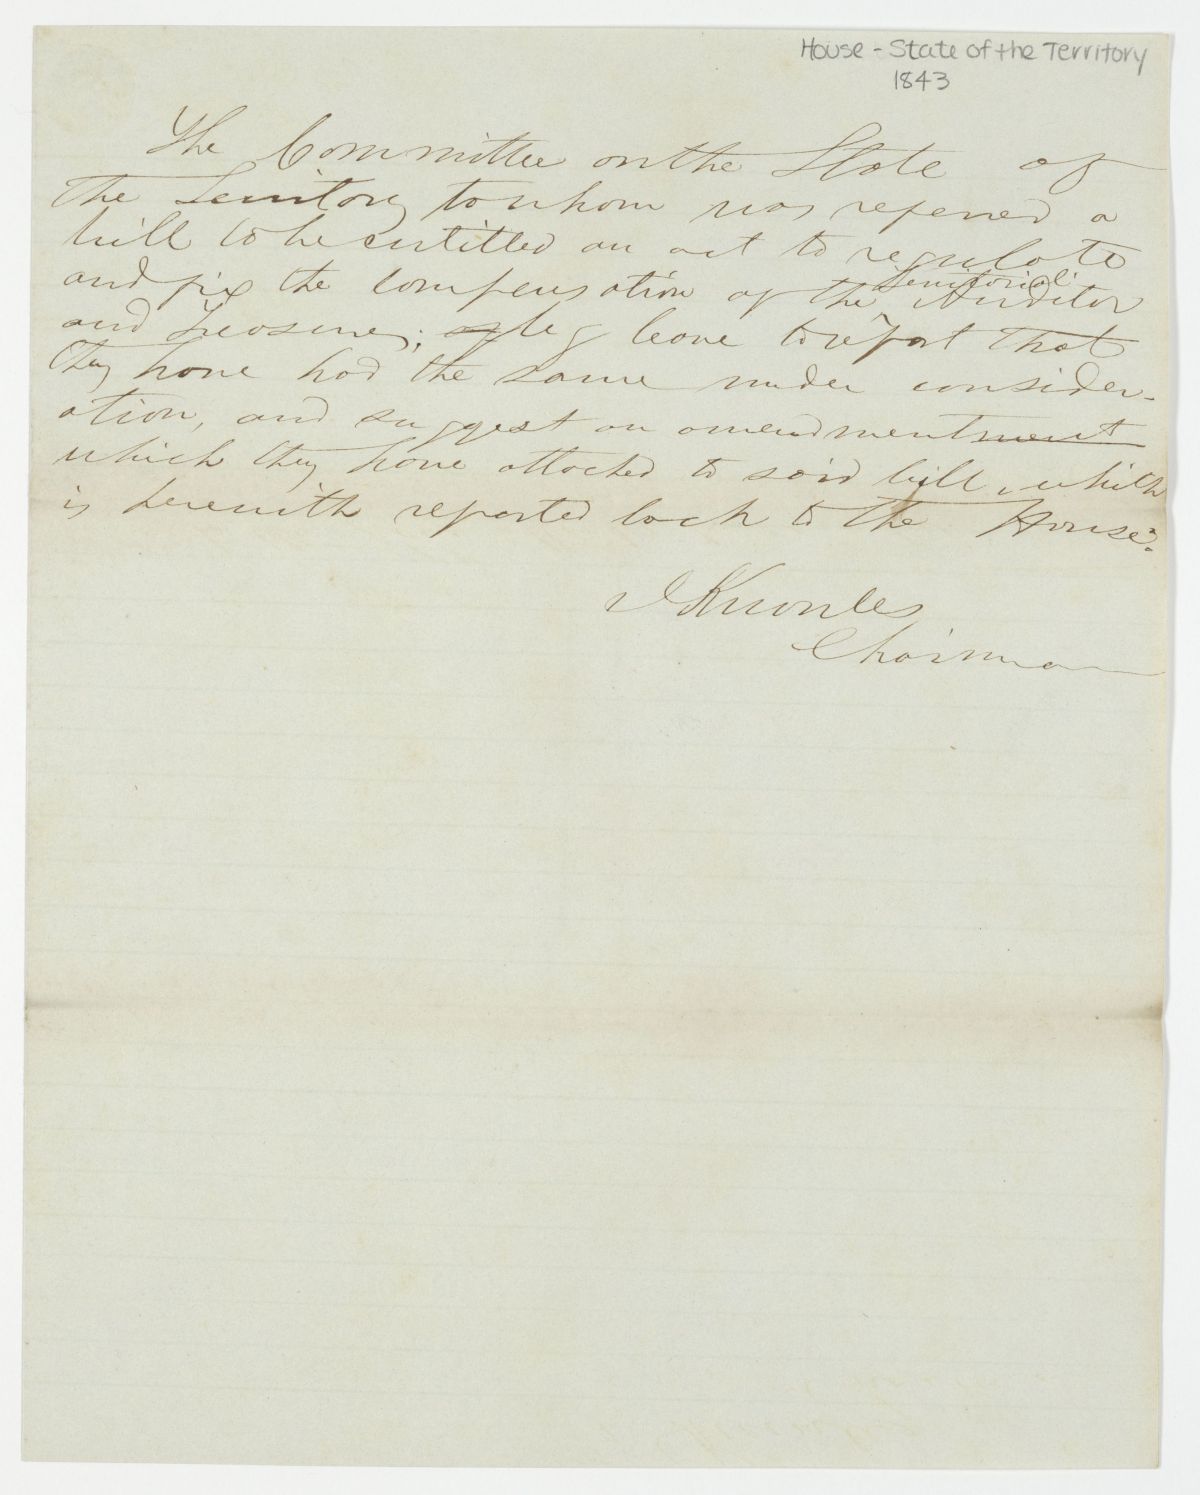 House - State of the Territory
1843
The Committee on the State of
the Territory to whom was referred a
bill to be entitled an act to regulate
and fix the compensation of the Territorial Auditor
and Treasurer; beg leave to report that
they have had the same under consider-
ation, and suggest an amendment
which they have attached to said bill, which
is herewith reported back to the House.
J Knowles
Chairman